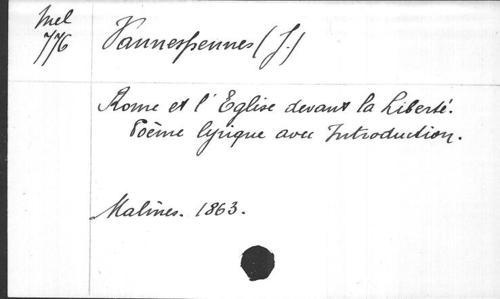 Mel
776
Vannespennes (J.)
Rome et l'Eglise devant la Liberté.
Poème lyrique avec Introduction.
Malines. 1863.